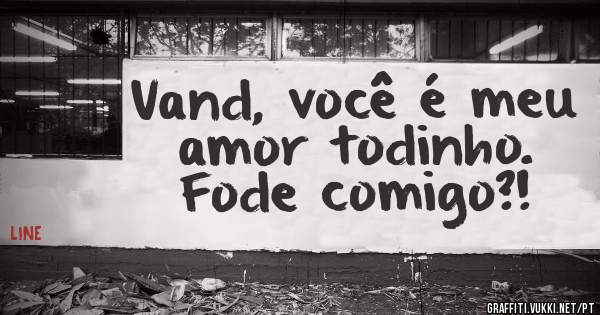 Vand, você é meu
amor todinho.
Fode comigo?!
LINE
GRAFFITI.VUKKI.NET/PT